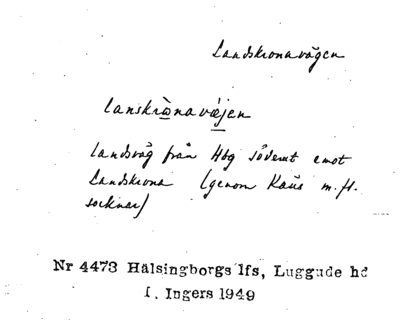 Landskronavägen
lanskrònavæjen
landsväg från Hbg söderut emot
Landskrona (genom Raus m.fl.
socknar)
Nr 4473 Hälsingborgs lfs, Luggude hd
I. Ingers 1949